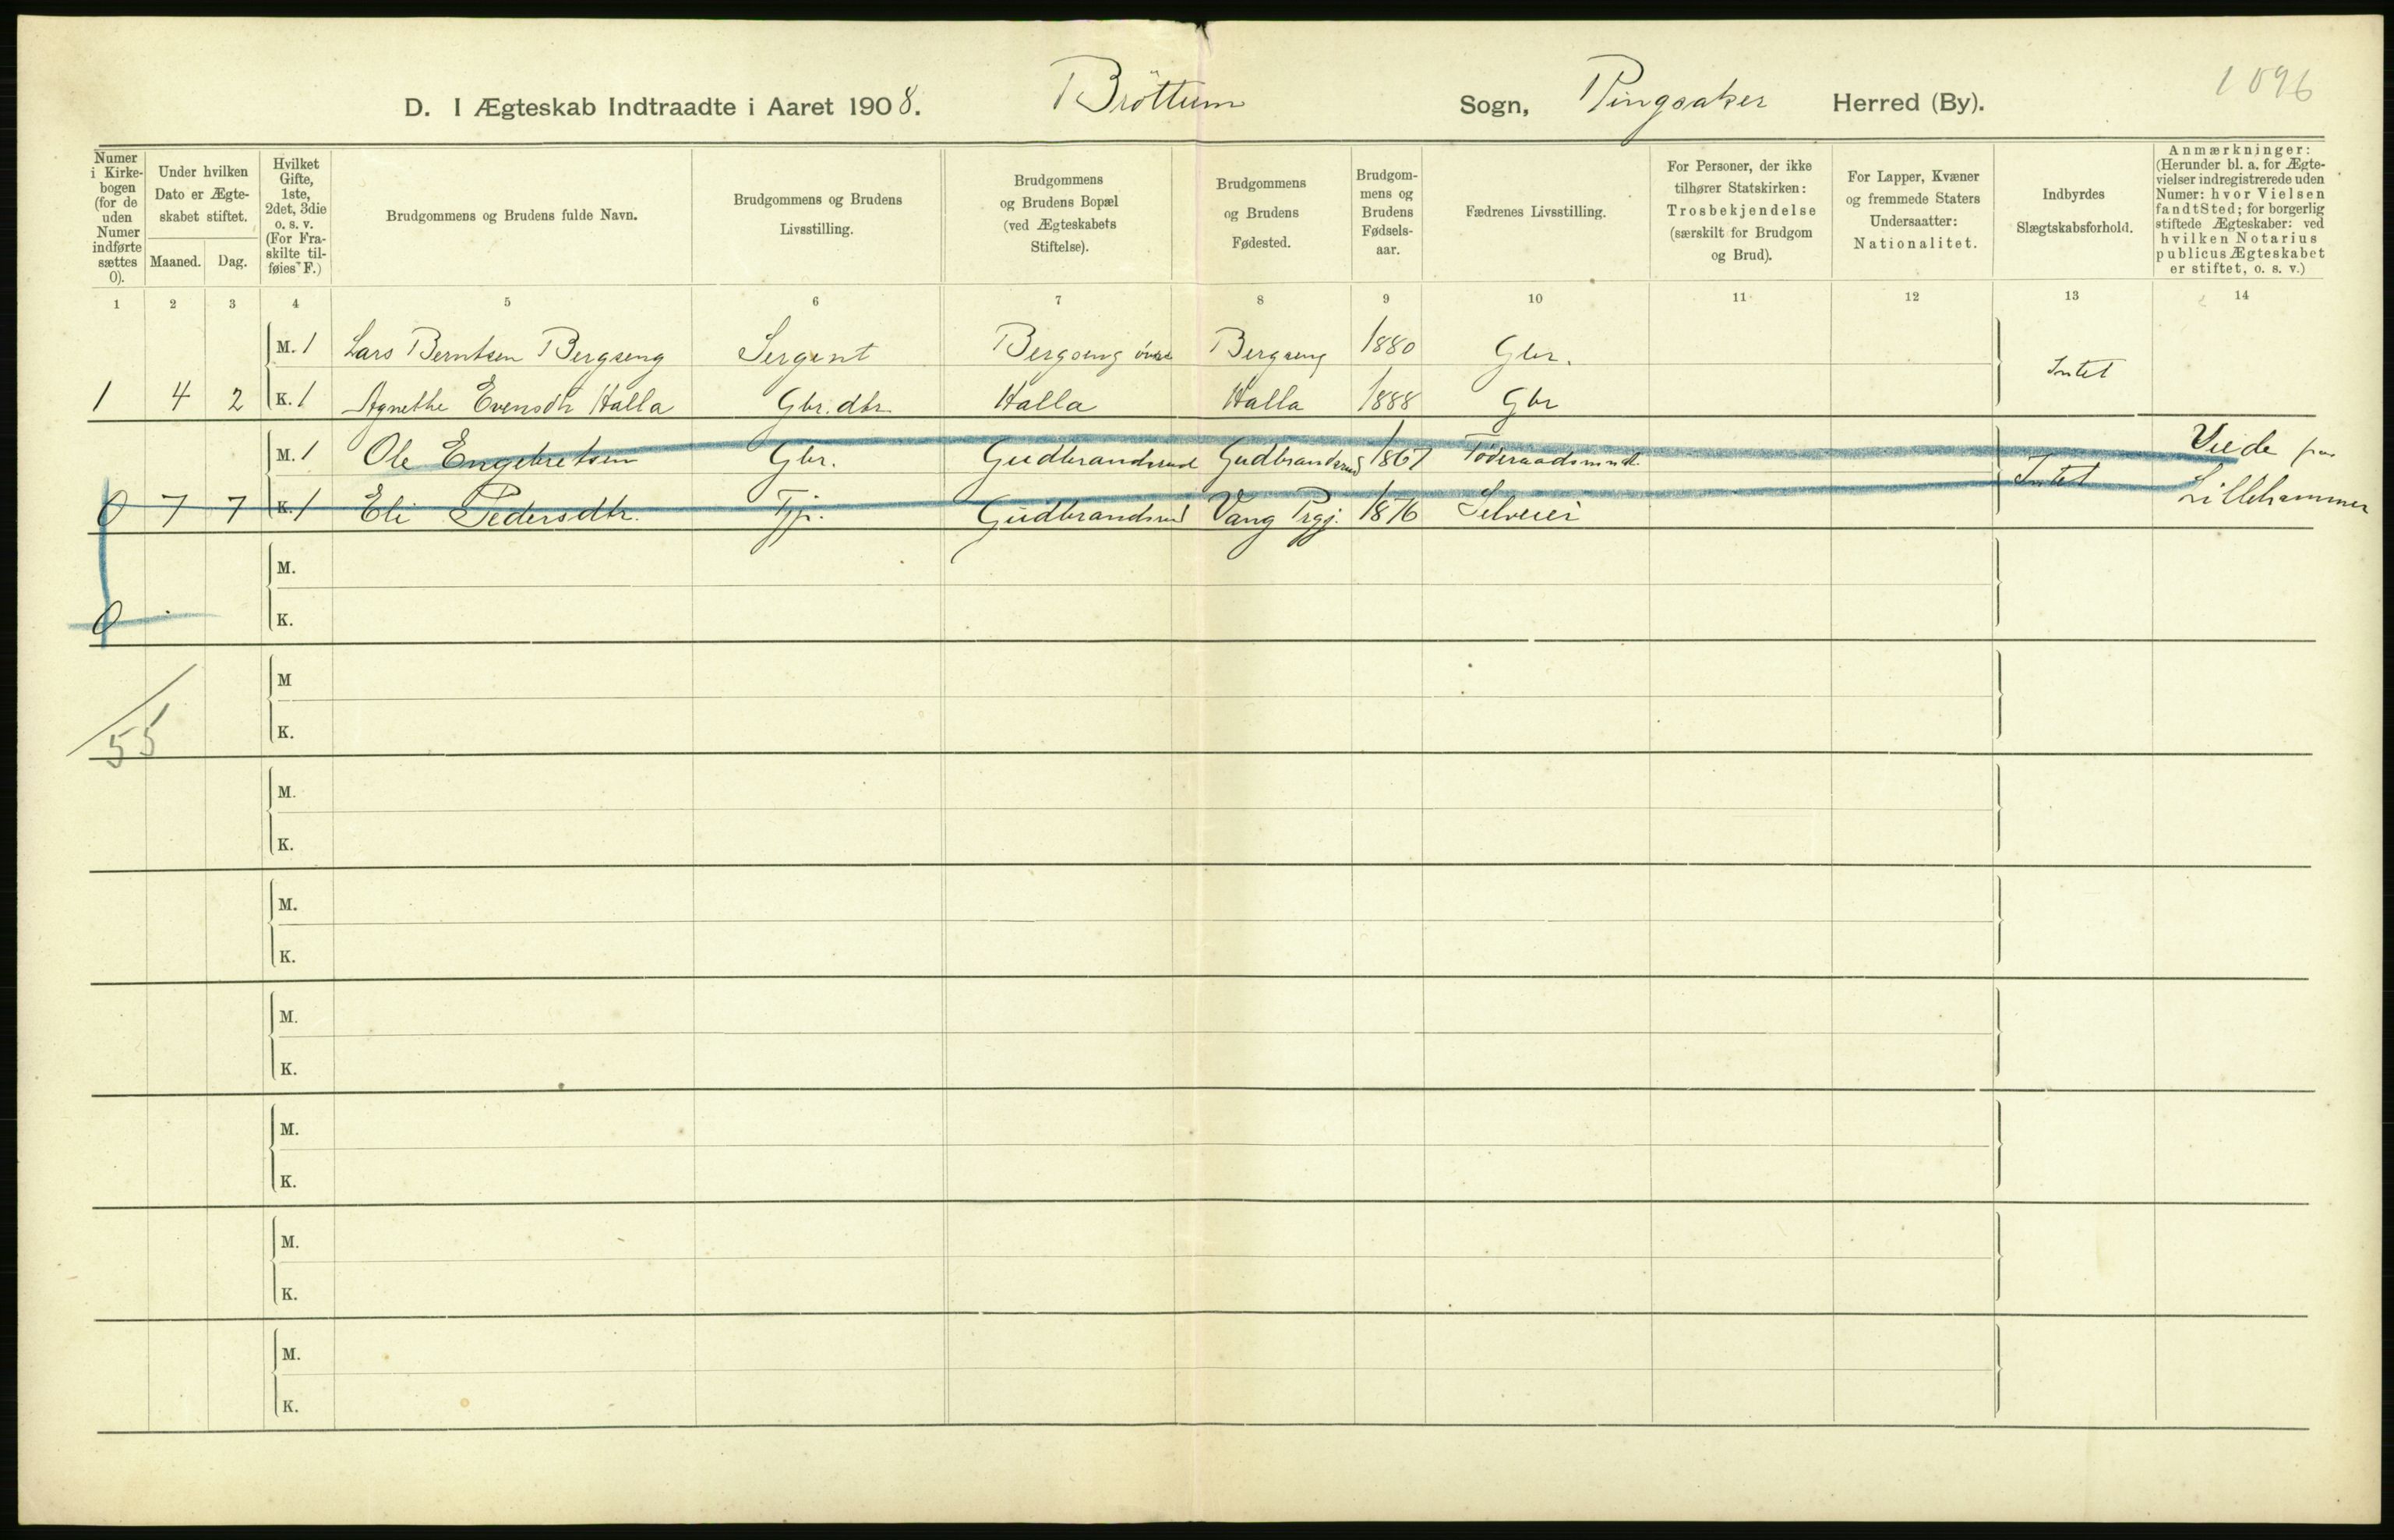 1096
D. I Ægteskab Indtraadte i Aaret 1908. Bröttum Sogn, Ringsaker Herred (By).
Numer i Kirkebogen (for de uden Numer indførte sættes 0).
Under hvilken Dato er Ægteskabet stiftet.
Maaned. Dag.
Hvilket Gifte, 1ste, 2det, 3die o. s. v. (For Fraskilte tilføies F.)
Brudgommens og Brudens fulde Navn.
Brudgommens og Brudens Livsstilling.
Brudgommens og Brudens Bopæl (ved Ægteskabets Stiftelse).
Brudgommens og Brudens Fødested.
Brudgommens og Brudens Fødselsaar.
Fædrenes Livsstilling.
For Personer, der ikke tilhører Statskirken: Trosbekjendelse (særskilt for Brudgom og Brud).
For Lapper, Kvæner og fremmede Staters Undersaatter: Nationalitet.
Indbyrdes Slægtskabsforhold.
Anmærkninger: (Herunder bl. a. for Ægtevielser indregistrerede uden Numer: hvor Vielsen fandt Sted; for borgerlig stiftede Ægteskaber: ved hvilken Notarius publicus Ægteskabet er stiftet, o. s. v.)
1 2 3 4 5 6 7 8 9 10 11 12 13 14
M. 1 Lars Berntsen Bergseng Sergent Bergseng övre Bergseng 1880 Gbr.
Intet
1 4 2 K. 1 Agnethe Evensdtr Halla Gbr. dtr. Halla Halla 1888 Gbr
M. 1 Ole Engebretsen Gbr. Gudbrandsrud Gudbrandsrud 1867 Föderaadsmand. Viede paa
Intet
0 7 7 K. 1 Eli Pedersdtr. Tjp. Gudbrandsrud Vang Prgj. 1876 Selveier Lillehammer
M.
0 K.
M
55 K.
M.
K.
M.
K.
M.
K.
M.
K.
M.
K.
M.
K.